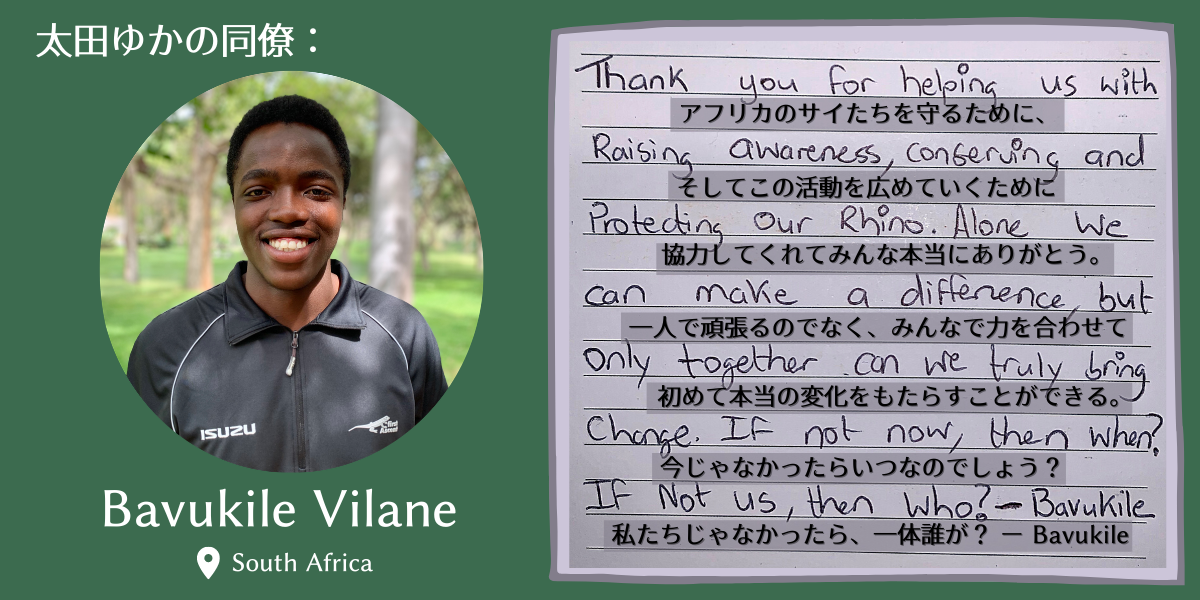 太田ゆかの同僚：
ISUZU
First Ascent
Bavukile Vilane
South Africa
Thank you for helping us with
アフリカのサイたちを守るために、
Raising awareness, conserving and
そしてこの活動を広めていくために
Protecting Our Rhino. Alone We
協力してくれてみんな本当にありがとう。
can make a difference, but
一人で頑張るのでなく、みんなで力を合わせて
only together can we truly bring
初めて本当の変化をもたらすことができる。
Change. If not now, then when?
今じゃなかったらいつなのでしょう？
If Not us, then who? - Bavukile
私たちじゃなかったら、一体誰が？ － Bavukile